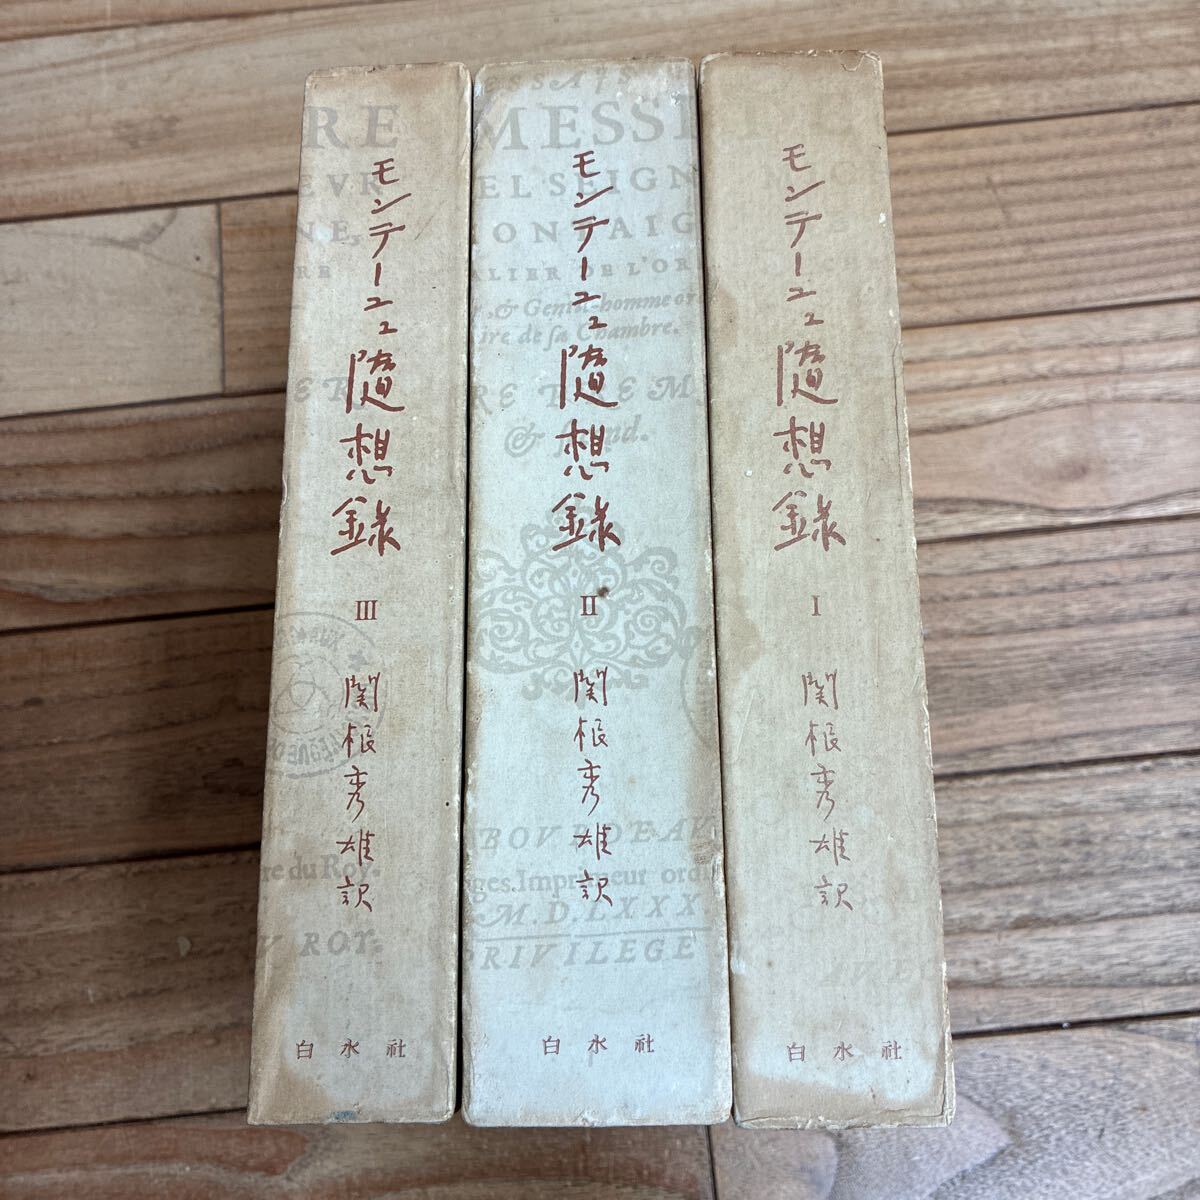 モンテーニュ随想録
III
関根秀雄訳
白水社
RE
EVR
NE,
RE
re du Roy.
ROY.
モンテーニュ随想録
II
関根秀雄訳
白水社
SSAIS
MESSI
EL SEIGN
MONTAIG
ALIER DE L'OR
r, & Gentil-homme or
ire de sa Chambre.
&
BOVRDEAV
ges, Imprimeur ordi
M.D.LXXX
PRIVILEGE
モンテーニュ随想録
I
関根秀雄訳
白水社